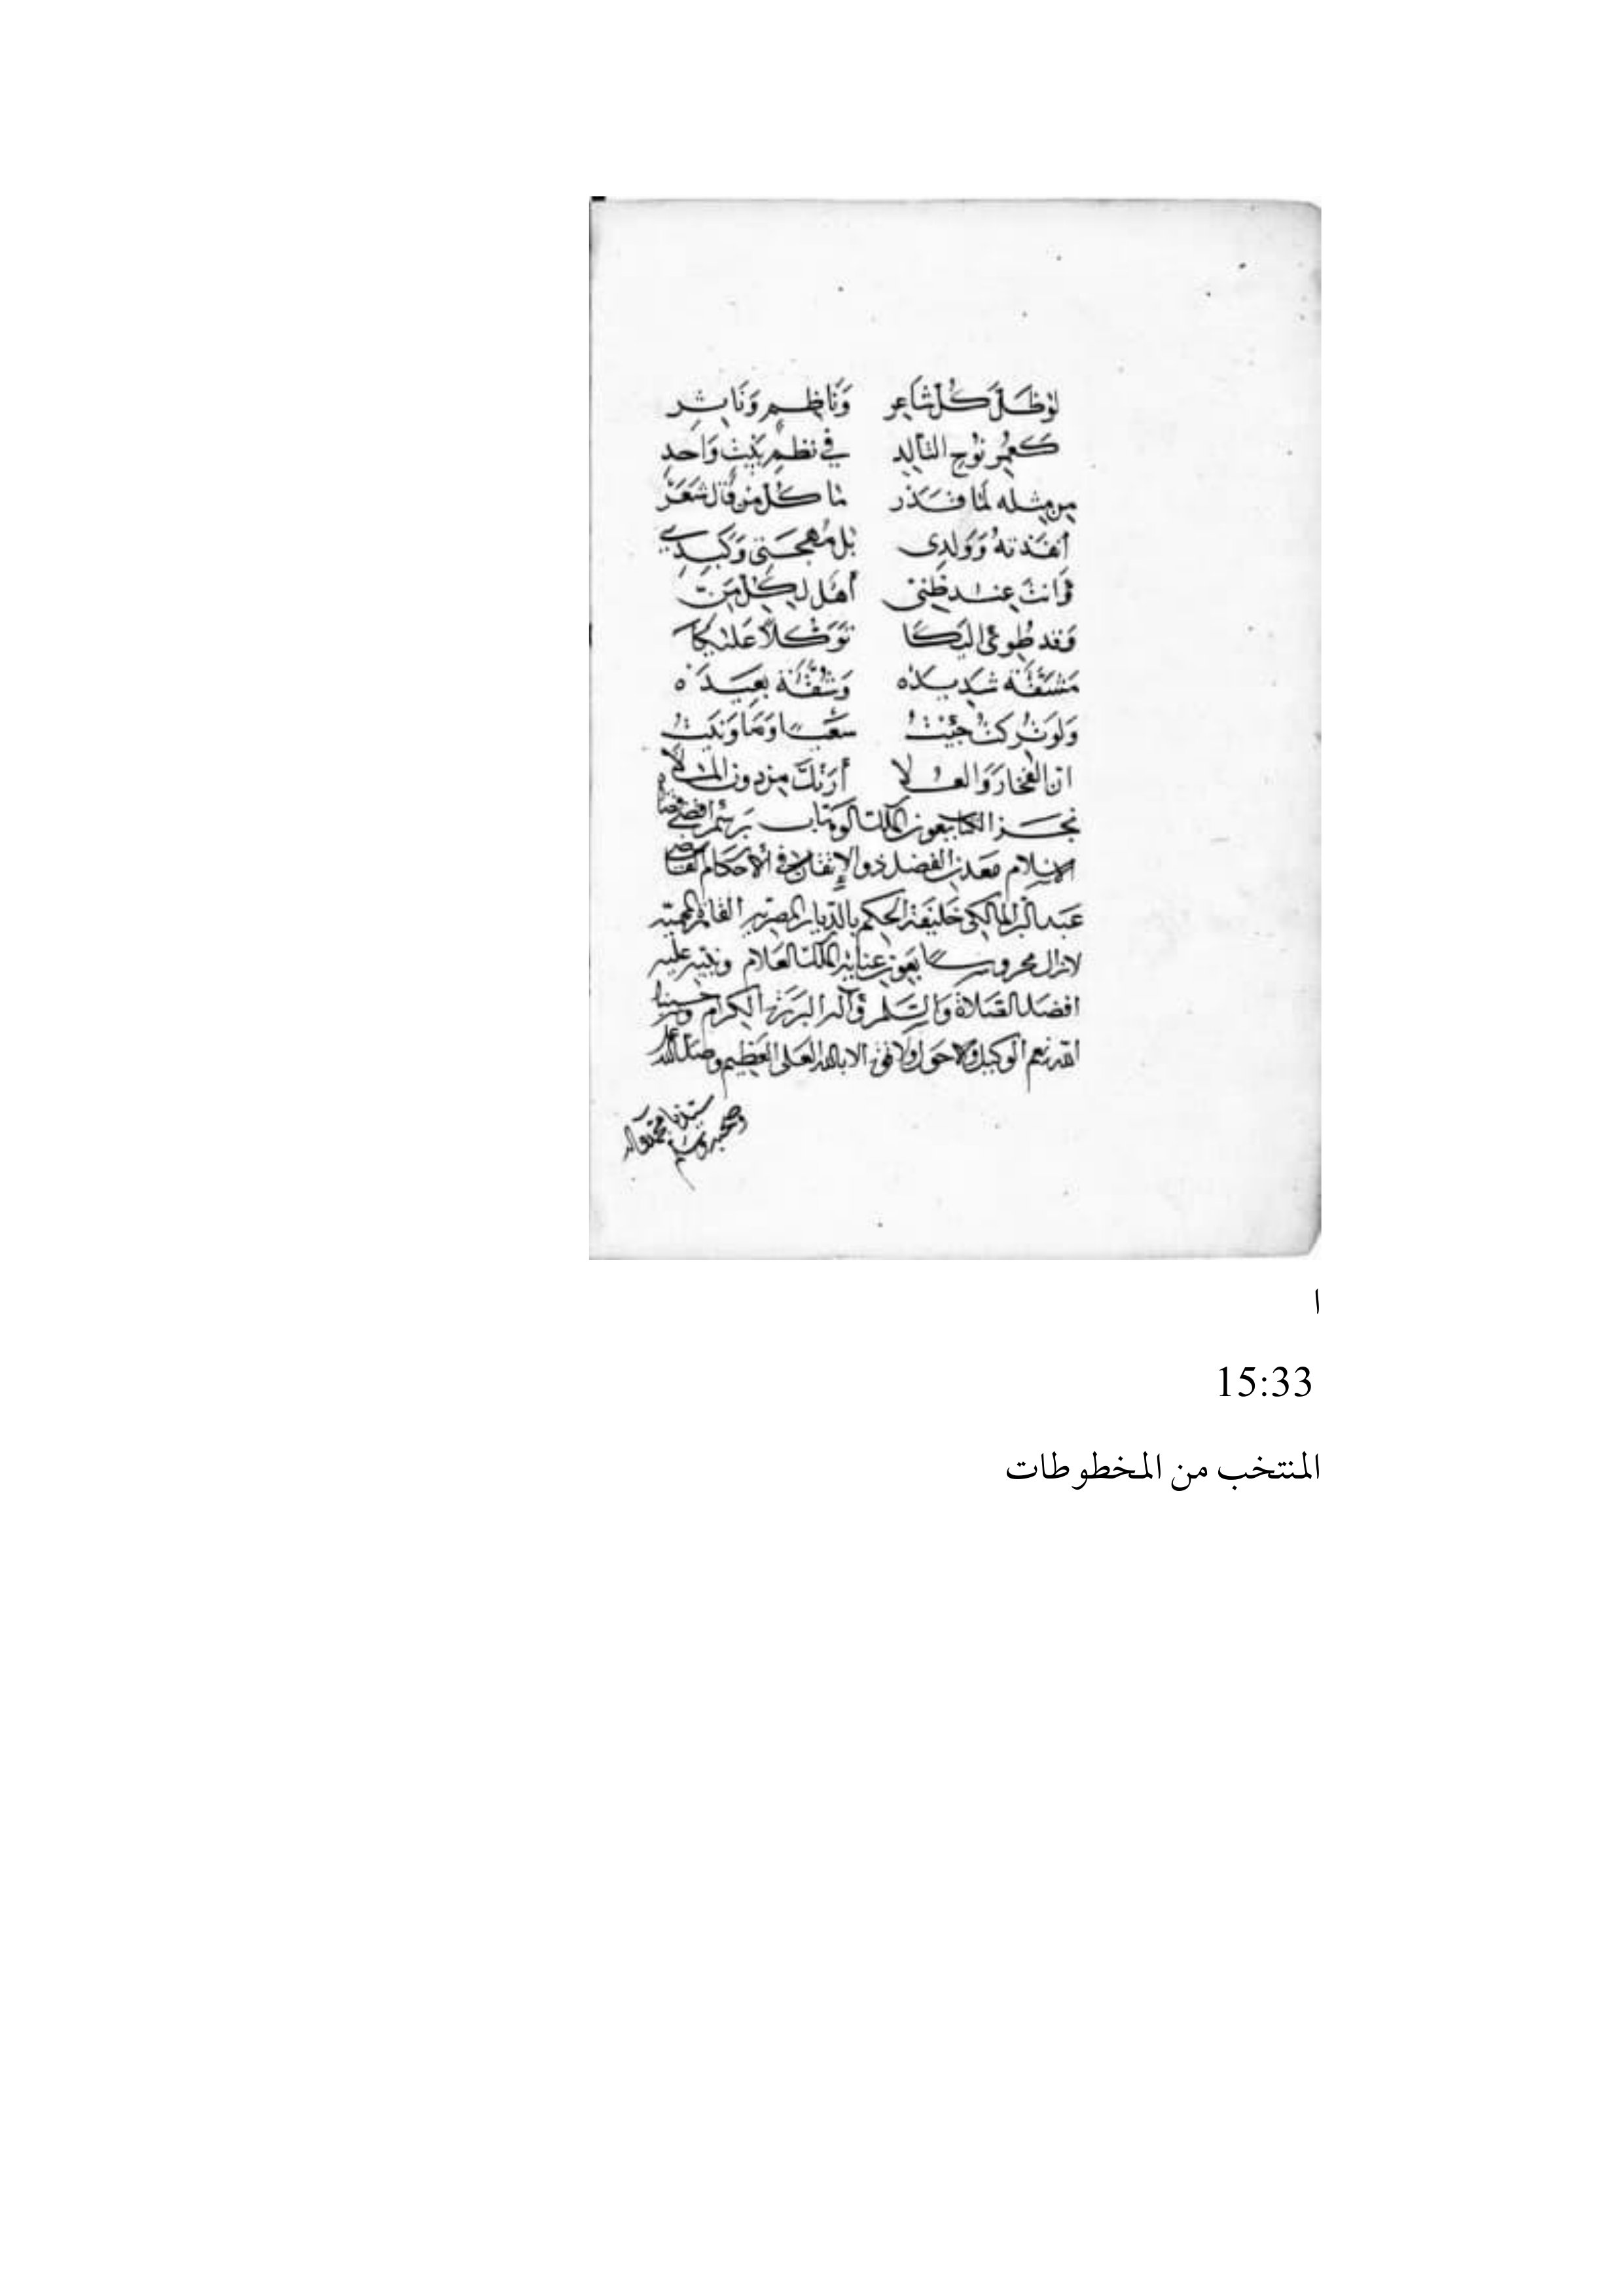 لوْ ظَلَّ كُلُّ شَاعِرِ وَنَاظِمٍ وَنَاثِرِ
كَعُمْرِ نُوحِ التَّالِدِ في نظمِ بَيْتٍ وَاحدِ
من مثله لَمَا قَدَر مَا كُلُّ مَنْ قَالَ شَعَرْ
أنفَذتهُ وَوَلدِى بَل مُهجَتِى وَكَبِدِي
وَانتَ عند ظَنّى أهل لِكُلِّ مَنّ
وَقد طُوى اليكَا تَوَكُّلاً عَلَيكَا
مَشَقَّة شَدِيده وَشُقَّة بَعِيدَه
وَلَو تُركتُ جئتُ سَعيًا وَمَا وَنَيْتُ
انّ الفخارَ وَالعُلا أرثكَ من دون المَلا
نجز الكتاب بعون الملك الوهاب برسم اقضى قضاه
الاسلام معدن الفضل ذو الإتقان في الأحكام القاضي
عبد البر المالكي خليفة الحكم بالديار المصرية القاهرة المحمية
لازال محروسًا بعون عناية الملك العلام ونبيه عليه
افضل الصلاة والسلام وآله البررة الكرام وحسبنا
الله نعم الوكيل ولا حول ولا قوة الا بالله العلى العظيم وصلى الله على
سيدنا محمد وآله
وصحبه وسلم
ا
15:33
المنتخب من المخطوطات